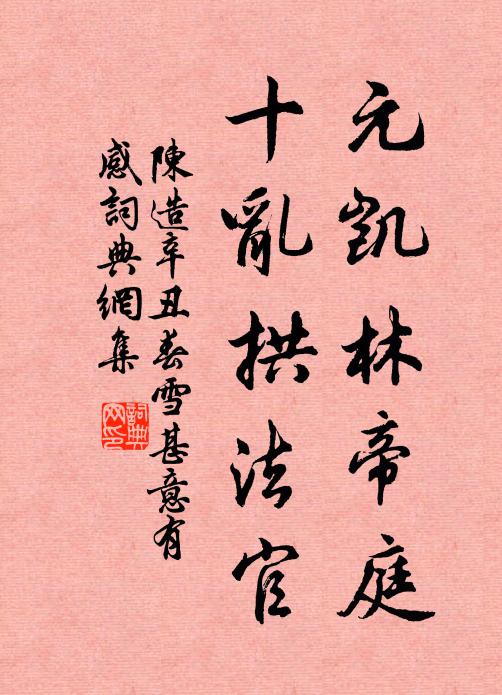 元凱林帝庭
十亂拱法官
陳造辛丑春雪甚意有
感詞典網集
詞典
网印